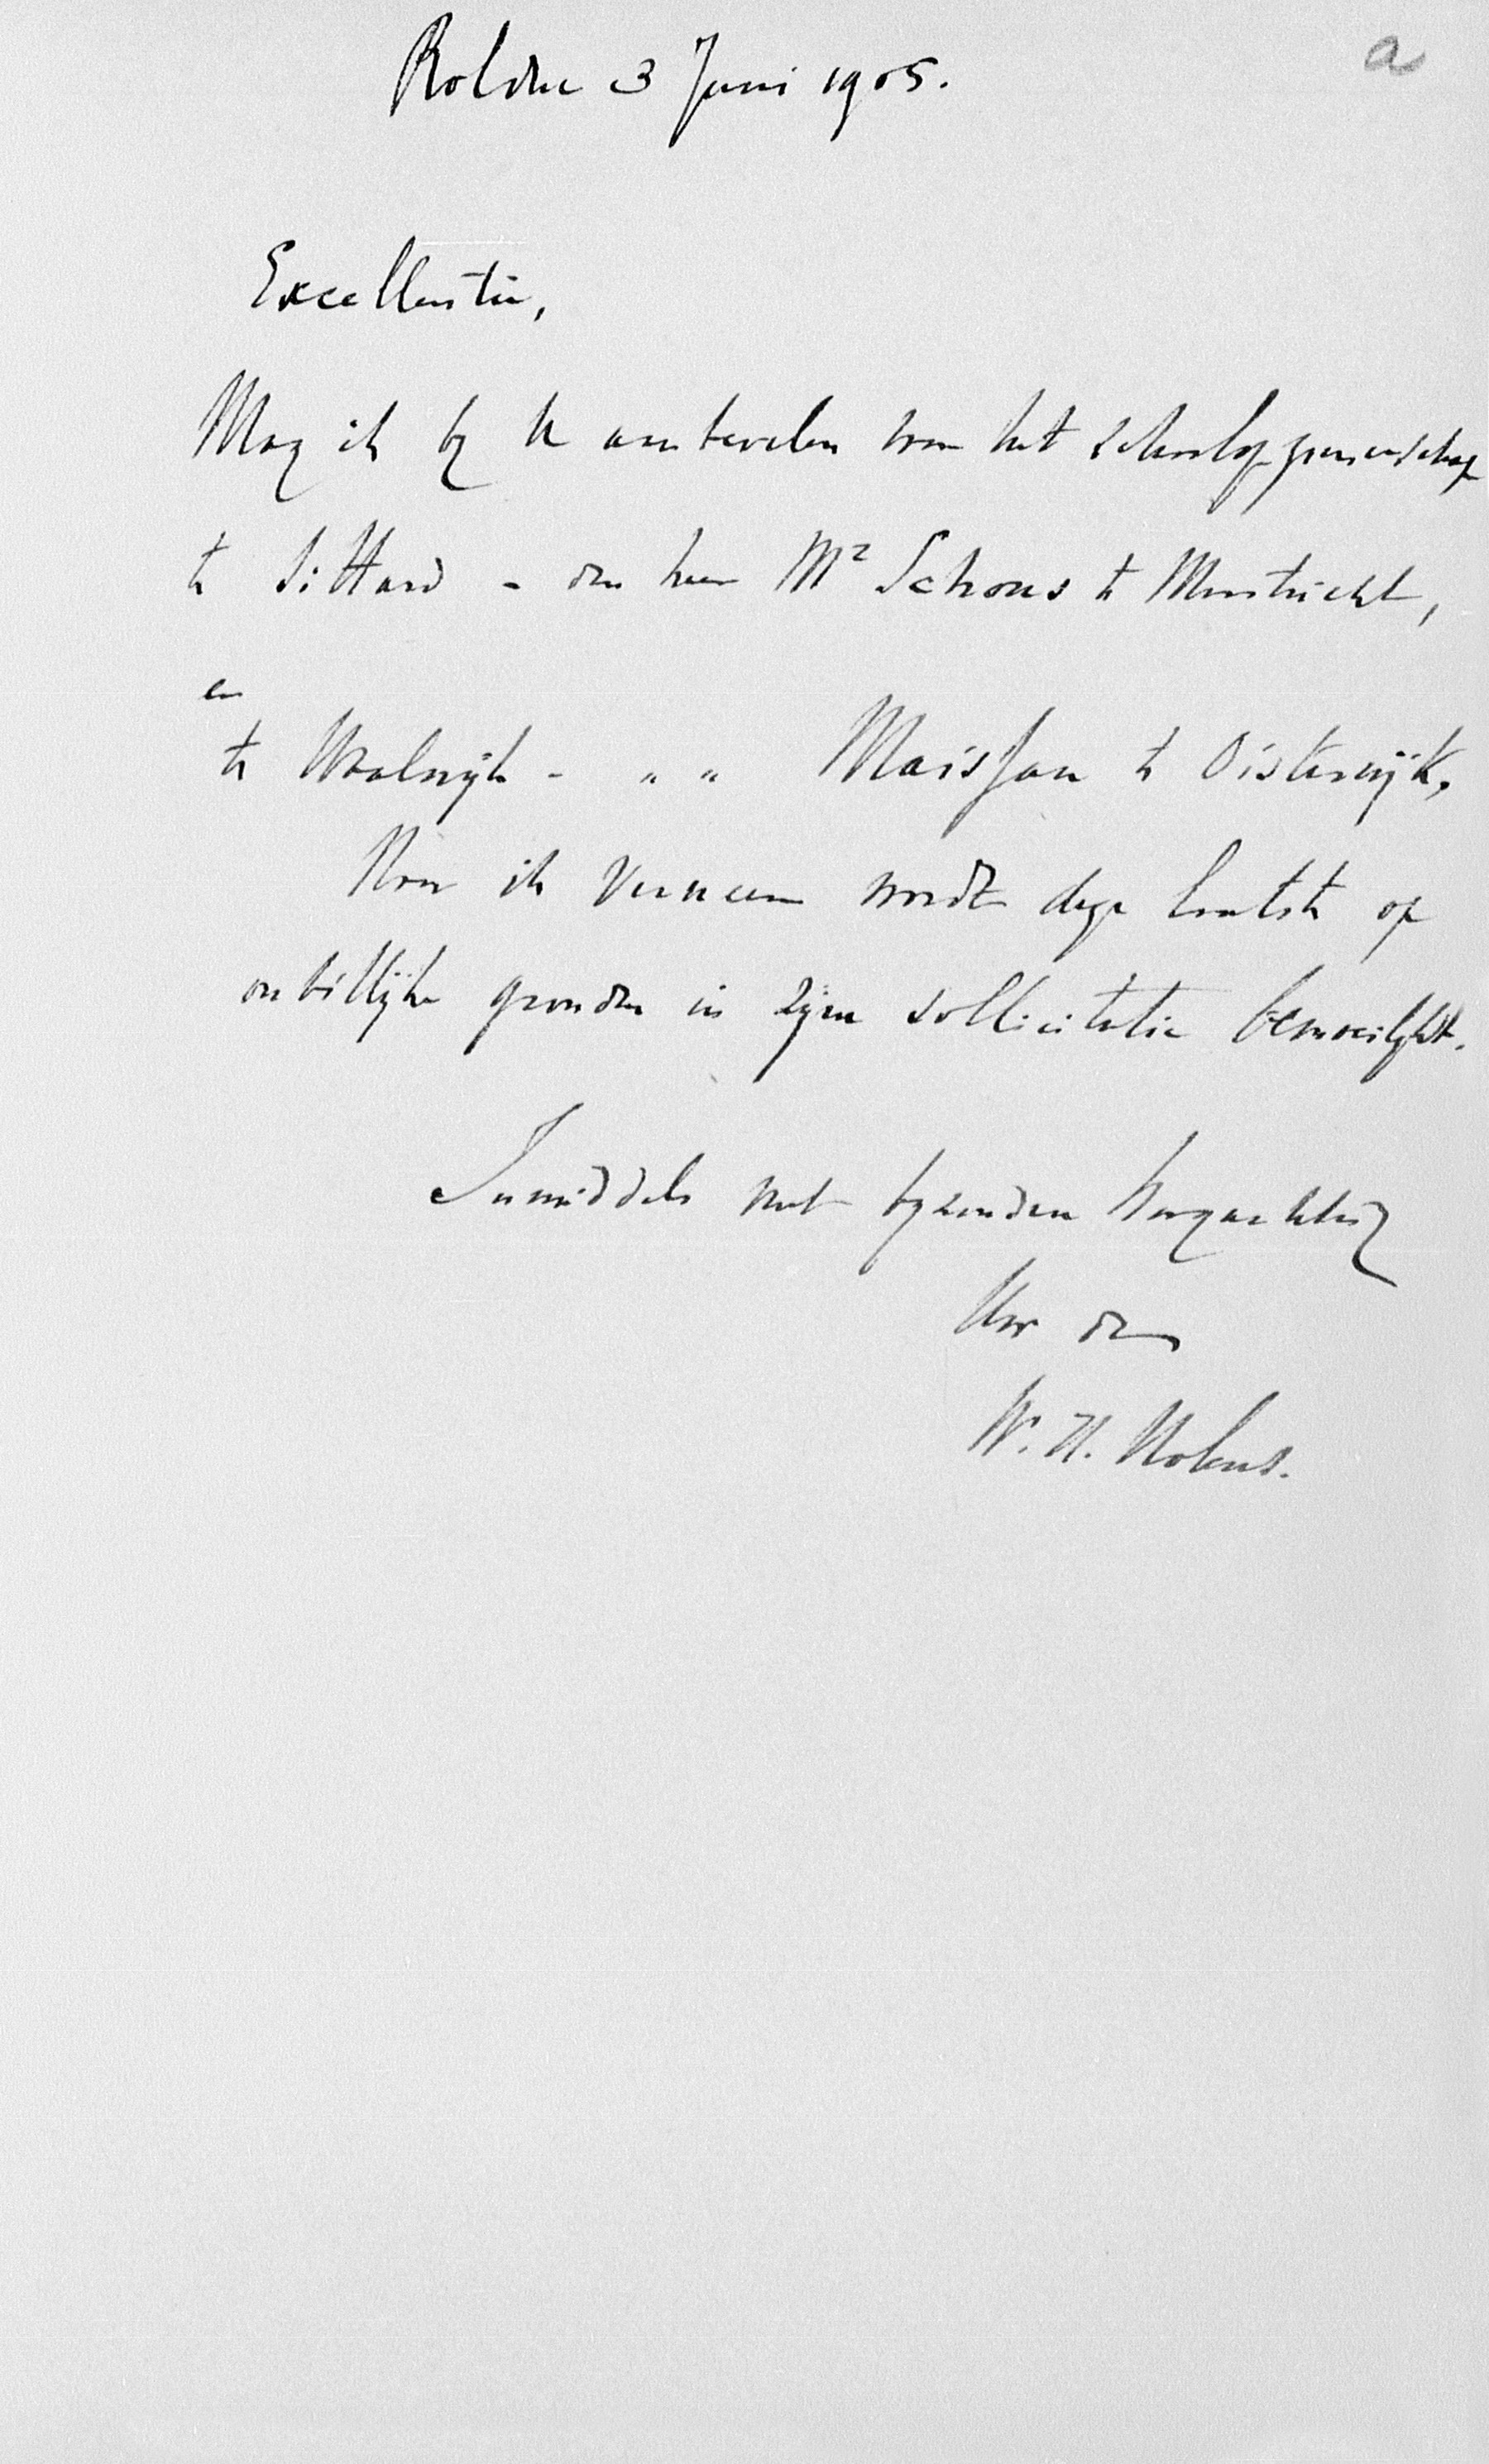 a
Rolduc 3 Juni 1905.
Excellentie,
Mag ik by U aanbevelen voor het schoolopzienerschap
te Sittard - den heer Mr Schous te Maastricht,
en
te Waalwijk - " " Maisfan te Oisterwijk,
Naar ik verneem wordt deze laatste op
onbillijke gronden in zijne sollicitatie bemoeilijkt.
Inmiddels met byzondere hoogachting
Uw dw
W. H. Nolens.